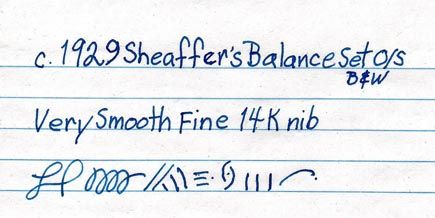 c. 1929 Sheaffer's Balance Set O/S
B&W
Very Smooth Fine 14K nib